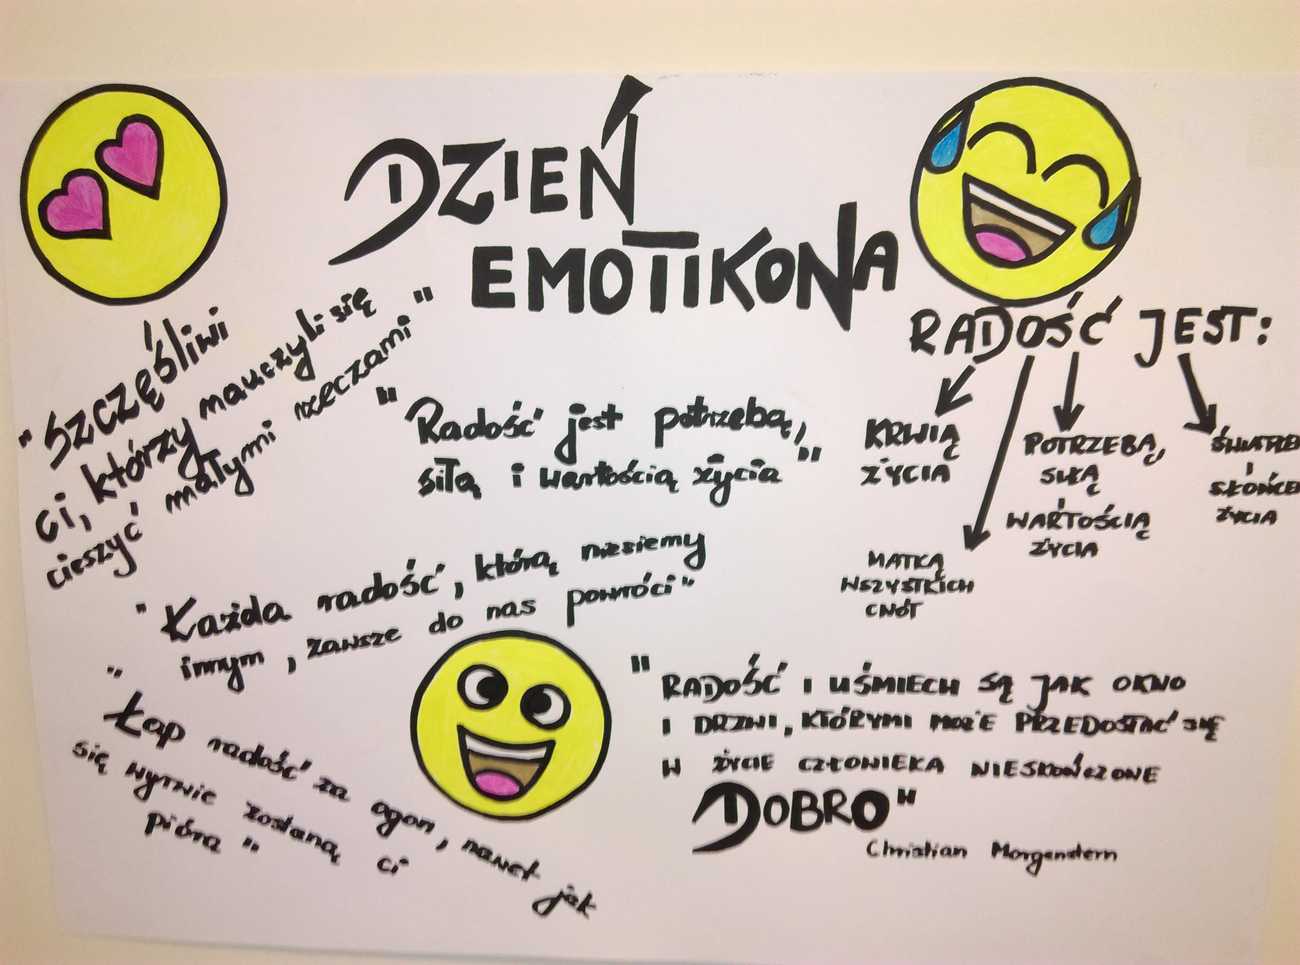 DZIEŃ
EMOTIKONA
"SZCZĘŚliwi
ci, którzy nauczyli się
cieszyć małymi rzeczami"
"Radość jest potrzebą,
siłą i wartością życia"
"Każda radość, którą niesiemy
innym, zawsze do nas powróci"
"Łap radość za ogon, nawet jak
się wyrwie zostaną ci
pióra"
RADOŚĆ JEST:
KRWIĄ
ŻYCIA
MATKĄ
WSZYSTKICH
CNÓT
POTRZEBĄ,
SIŁĄ
I
WARTOŚCIĄ
ŻYCIA
ŚWIATŁE
I
SŁOŃCE
ŻYCIA
"RADOŚĆ I UŚMIECH SĄ JAK OKNO
I DRZWI, KTÓRYMI MOŻE PRZEDOSTAĆ SIĘ
W ŻYCIE CZŁOWIEKA NIESKOŃCZONE
DOBRO"
Christian Morgenstern